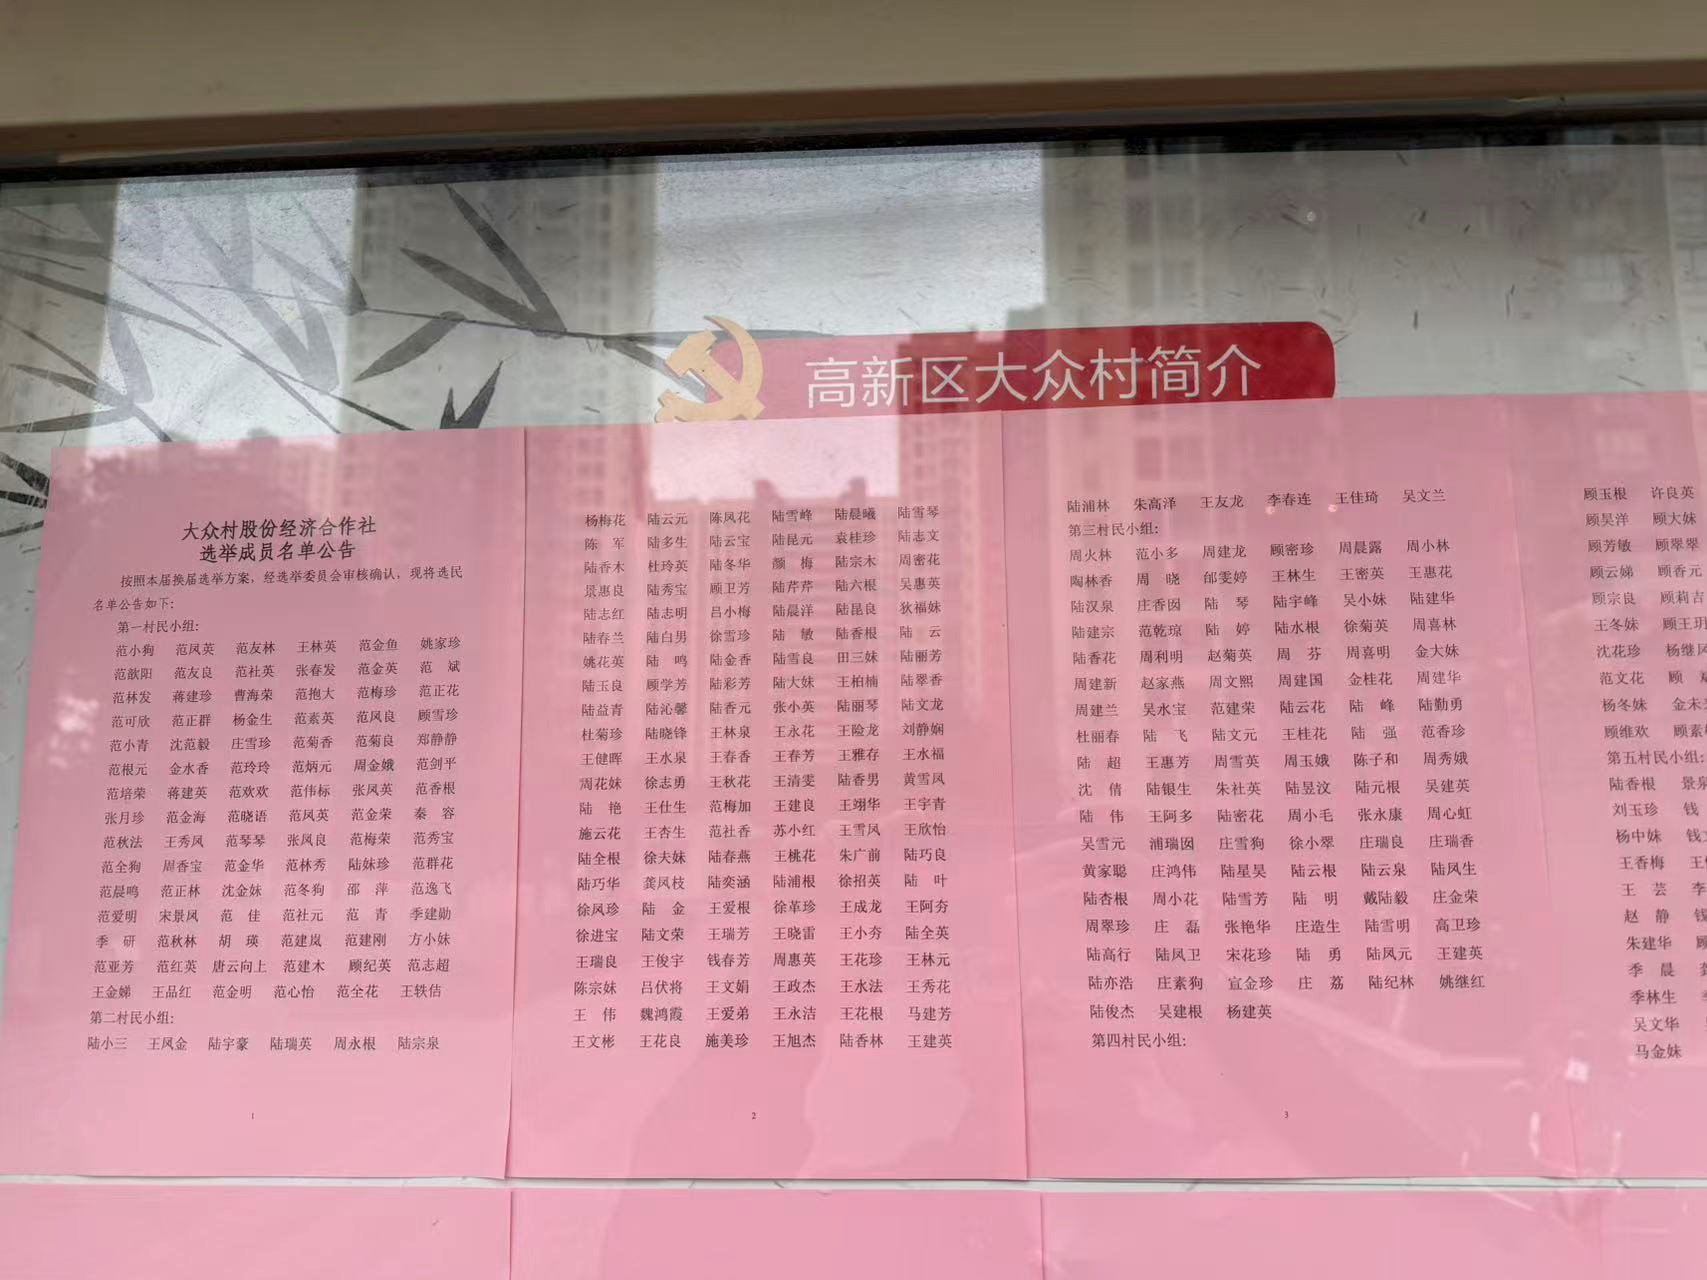 高新区大众村简介
大众村股份经济合作社
选举成员名单公告
按照本届换届选举方案，经选举委员会审核确认，现将选民
名单公告如下：
第一村民小组：
范小狗 范凤英 范友林 王林英 范金鱼 姚家珍
范歆阳 范友良 范社英 张春发 范金英 范斌
范林发 蒋建珍 曹海荣 范抱大 范梅珍 范正花
范可欣 范正群 杨金生 范素英 范凤良 顾雪珍
范小青 沈范毅 庄雪珍 范菊香 范菊良 郑静静
范根元 金水香 范玲玲 范炳元 周金娥 范剑平
范培荣 蒋建英 范欢欢 范伟标 张凤英 范香根
张月珍 范金海 范晓语 范凤英 范金荣 秦容
范秋法 王秀凤 范琴琴 张凤良 范梅荣 范秀宝
范全狗 周香宝 范金华 范林秀 陆妹珍 范群花
范晨鸣 范正林 沈金妹 范冬狗 邵萍 范逸飞
范爱明 宋景凤 范佳 范社元 范青 季建勋
季研 范秋林 胡瑛 范建岚 范建刚 方小妹
范亚芳 范红英 唐云向上 范建木 顾纪英 范志超
王金娣 王品红 范金明 范心怡 范全花 王轶佶
第二村民小组：
陆小三 王凤金 陆宇豪 陆瑞英 周永根 陆宗泉
1
杨梅花 陆云元 陈凤花 陆雪峰 陆晨曦 陆雪琴
陈军 陆多生 陆云宝 陆昆元 袁桂珍 陆志文
陆香木 杜玲英 陆冬华 颜梅 陆宗木 周密花
景惠良 陆秀宝 顾卫芳 陆芹芹 陆六根 吴惠英
陆志红 陆志明 吕小梅 陆晨洋 陆昆良 狄福妹
陆春兰 陆白男 徐雪珍 陆敏 陆香根 陆云
姚花英 陆鸣 陆金香 陆雪良 田三妹 陆丽芳
陆玉良 顾学芳 陆彩芳 陆大妹 王柏楠 陆翠香
陆益青 陆沁馨 陆香元 张小英 陆丽琴 陆文龙
杜菊珍 陆晓锋 王林泉 王永花 王险龙 刘静娴
王健晖 王水泉 王春香 王春芳 王雅存 王水福
周花妹 徐志勇 王秋花 王清雯 陆香男 黄雪凤
陆艳 王仕生 范梅加 王建良 王翊华 王宇青
施云花 王杏生 范社香 苏小红 王雪凤 王欣怡
陆全根 徐夫妹 陆春燕 王桃花 朱广前 陆巧良
陆巧华 龚凤枝 陆奕涵 陆浦根 徐招英 陆叶
徐凤珍 陆金 王爱根 徐革珍 王成龙 王阿夯
徐进宝 陆文荣 王瑞芳 王晓雷 王小夯 陆全英
王瑞良 王俊宇 钱春芳 周惠英 王花珍 王林元
陈宗妹 吕伏将 王文娟 王政杰 王水法 王秀花
王伟 魏鸿霞 王爱弟 王永洁 王花根 马建芳
王文彬 王花良 施美珍 王旭杰 陆香林 王建英
2
陆浦林 朱高泽 王友龙 李春连 王佳琦 吴文兰
第三村民小组：
周火林 范小多 周建龙 顾密珍 周晨露 周小林
陶林香 周晓 邰雯婷 王林生 王密英 王惠花
陆汉泉 庄香囡 陆琴 陆宇峰 吴小妹 陆建华
陆建宗 范乾琼 陆婷 陆水根 徐菊英 周喜林
陆香花 周利明 赵菊英 周芬 周喜明 金大妹
周建新 赵家燕 周文熙 周建国 金桂花 周建华
周建兰 吴水宝 范建荣 陆云花 陆峰 陆勤勇
杜丽春 陆飞 陆文元 王桂花 陆强 范香珍
陆超 王惠芳 周雪英 周玉娥 陈子和 周秀娥
沈倩 陆银生 朱社英 陆昱汶 陆元根 吴建英
陆伟 王阿多 陆密花 周小毛 张永康 周心虹
吴雪元 浦瑞囡 庄雪狗 徐小翠 庄瑞良 庄瑞香
黄家聪 庄鸿伟 陆星昊 陆云根 陆云泉 陆凤生
陆杏根 周小花 陆雪芳 陆明 戴陆毅 庄金荣
周翠珍 庄磊 张艳华 庄造生 陆雪明 高卫珍
陆高行 陆凤卫 宋花珍 陆勇 陆凤元 王建英
陆亦浩 庄素狗 宣金珍 庄荔 陆纪林 姚继红
陆俊杰 吴建根 杨建英
第四村民小组：
3
顾玉根 许良英
顾昊洋 顾大妹
顾芳敏 顾翠翠
顾云娣 顾香元
顾宗良 顾莉吉
王冬妹 顾王玥
沈花珍 杨继凤
范文花 顾
杨冬妹 金未
顾维欢 顾素
第五村民小组：
陆香根 景泉
刘玉珍 钱
杨中妹 钱
王香梅 王
王芸 李
赵静 钱
朱建华 顾
季晨 龚
季林生
吴文华
马金妹